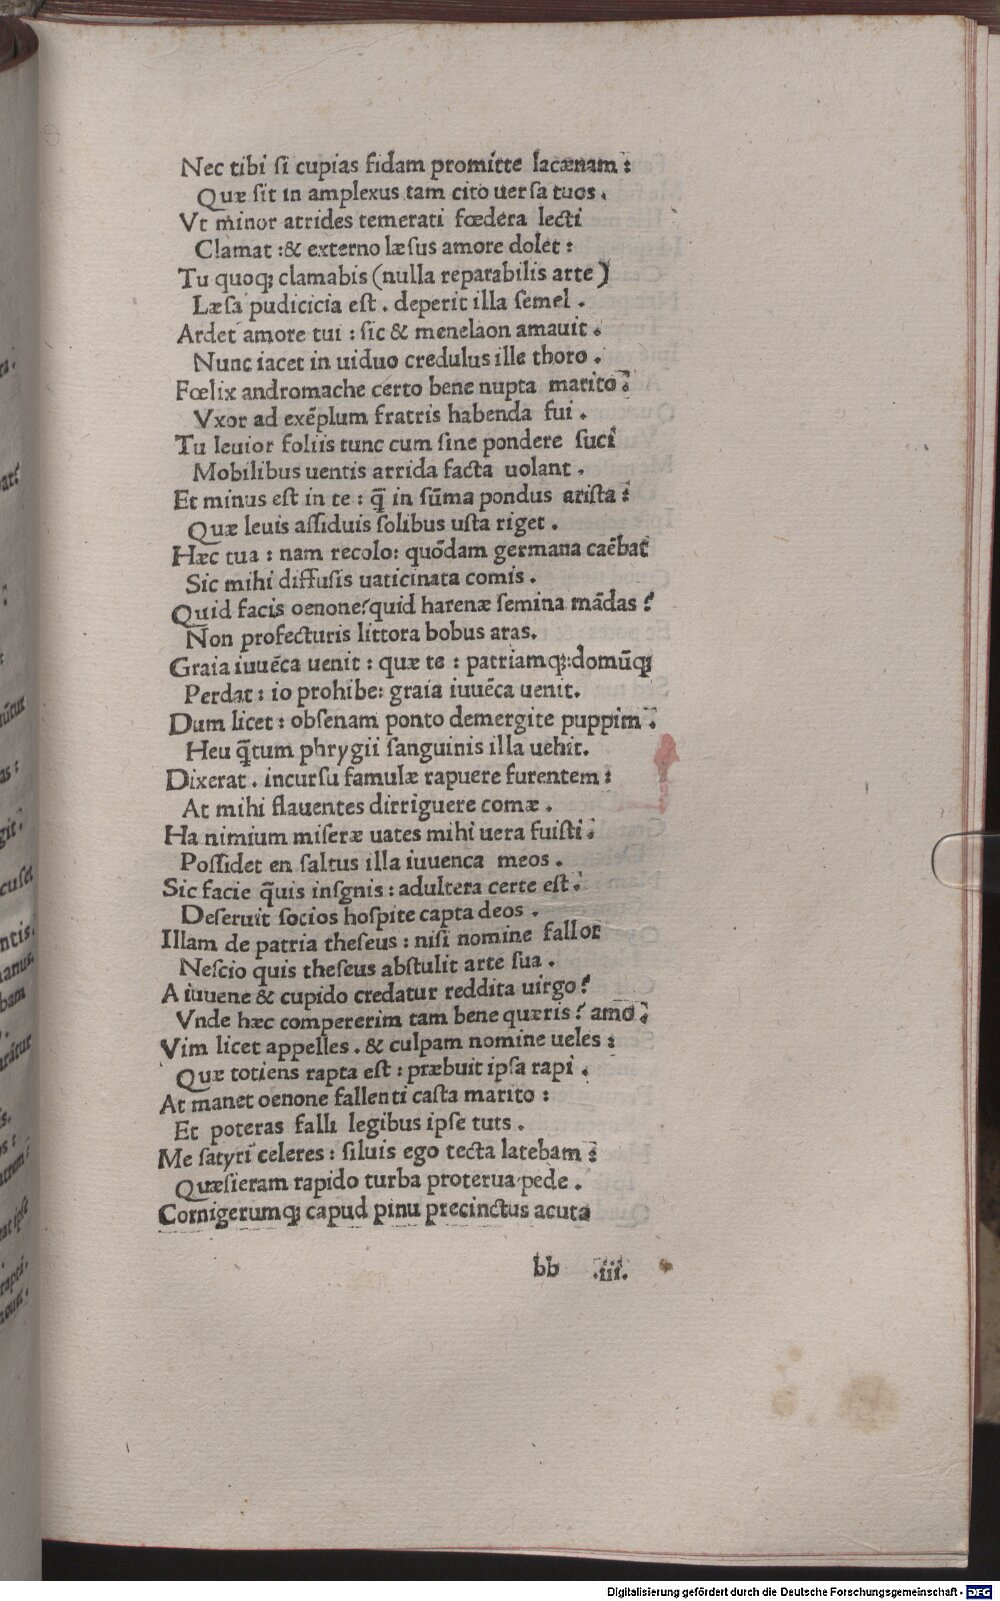 Nec tibi si cupias fidam promitte lacænam :
Quæ sit in amplexus tam cito uersa tuos .
Vt minor atrides temerati fœdera lecti
Clamat : & externo læsus amore dolet :
Tu quoqꝫ clamabis (nulla reparabilis arte)
Læsa pudicicia est . deperit illa semel .
Ardet amore tui : sic & menelaon amauit .
Nunc iacet in uiduo credulus ille thoro .
Fœlix andromache certo bene nupta marito :
Vxor ad exēplum fratris habenda fui .
Tu leuior foliis tunc cum sine pondere suci
Mobilibus uentis arrida facta uolant .
Et minus est in te : q̄ in sūma pondus arista :
Quæ leuis assiduis solibus usta riget .
Hæc tua : nam recolo : quōdam germana caēbat
Sic mihi diffusis uaticinata comis .
Quid facis oenone? quid harenæ semina mādas ?
Non profecturis littora bobus aras.
Graia iuuēca uenit : quæ te : patriamqꝫ: domūqꝫ
Perdat : io prohibe: graia iuuēca uenit.
Dum licet : obsenam ponto demergite puppim .
Heu q̄tum phrygii sanguinis illa uehit.
Dixerat . incursu famulæ rapuere furentem :
At mihi flauentes dirriguere comæ .
Ha nimium miseræ uates mihi uera fuisti :
Possidet en saltus illa iuuenca meos .
Sic facie q̄uis insgnis : adultera certe est :
Deseruit socios hospite capta deos .
Illam de patria theseus : nisi nomine fallor
Nescio quis theseus abstulit arte sua .
A iuuene & cupido credatur reddita uirgo?
Vnde hæc compererim tam bene quæris ? amo :
Vim licet appelles . & culpam nomine ueles :
Quæ totiens rapta est : præbuit ipsa rapi .
At manet oenone fallenti casta marito :
Et poteras falli legibus ipse tuts .
Me satyri celeres : siluis ego tecta latebam :
Quæsieram rapido turba proterua pede .
Cornigerumqꝫ capud pinu precinctus acuta
bb .iii.
Digitalisierung gefördert durch die Deutsche Forschungsgemeinschaft - DFG